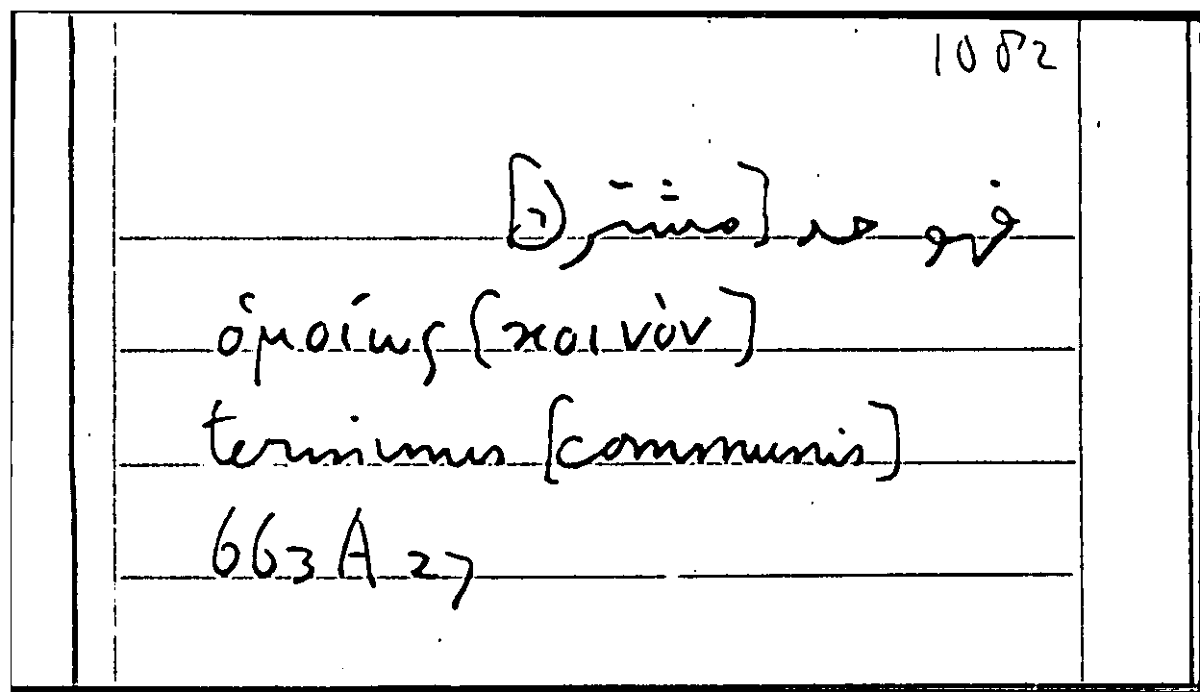 1082
فهو حد [مشترك]
ὁμοίως [κοινὸν]
terminus [communis]
663A27